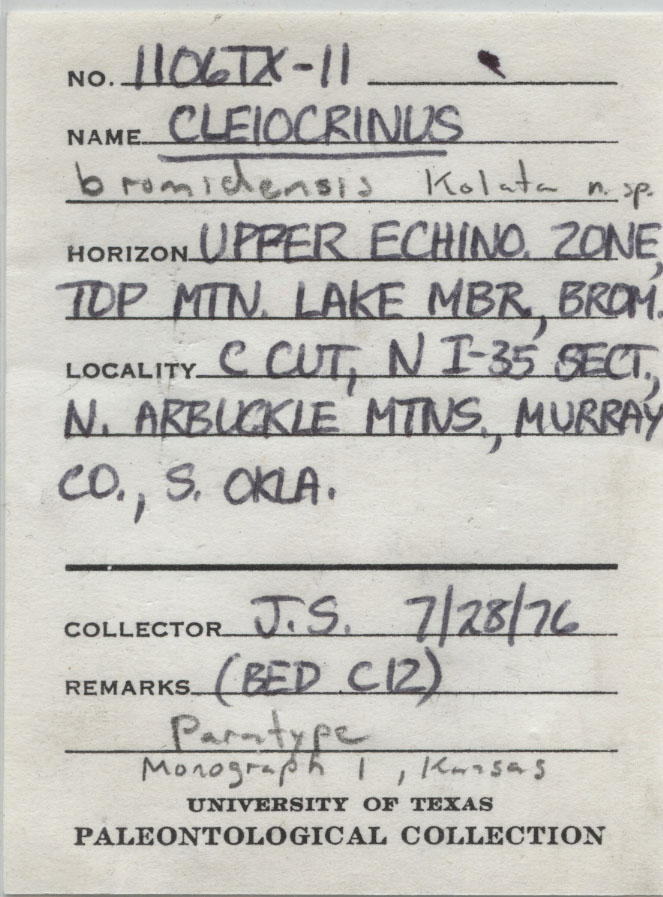 NO. 1106TX-11
NAME CLEIOCRINUS
bromidensis Kolata n. sp.
HORIZON UPPER ECHINO. ZONE,
TOP MTN. LAKE MBR., BROM.
LOCALITY C CUT, N I-35 SECT.,
N. ARBUCKLE MTNS., MURRAY
CO., S. OKLA.
COLLECTOR J.S. 7/28/76
REMARKS (BED C12)
Paratype
Monograph 1, Kansas
UNIVERSITY OF TEXAS
PALEONTOLOGICAL COLLECTION